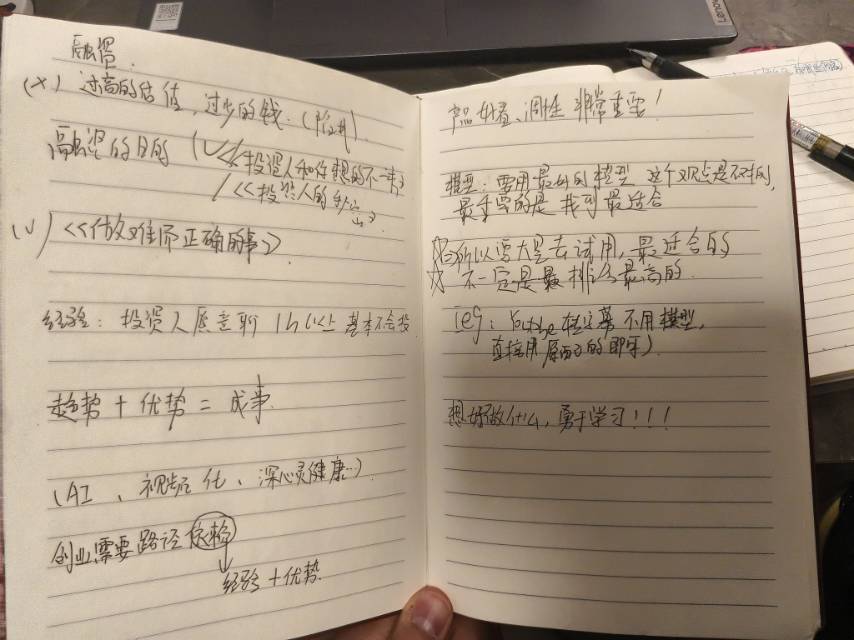 融资.
(X) 过高的估值，过少的钱.(陷阱)
融资的目的 (V《投资人和你想的不一样》
《投资人的
(V)《做难而正确的事》
经验：投资人愿意聊 1h以上 基本不会投
趋势 + 优势 = 成事.
(AI、视频化、深心灵健康…)
创业需要路径 依赖
经验 + 优势.
产品 好看、调性 非常重要！
模型：要用最好的模型 这个观点是不对的,
最重要的是 找到 最适合
所以要大量去试用，最适合的
不一定是最 排名最高的.
(eg：转字幕 不用模型,
直接用 原的 即可)
想好做什么，勇于学习！！！
Lenovo